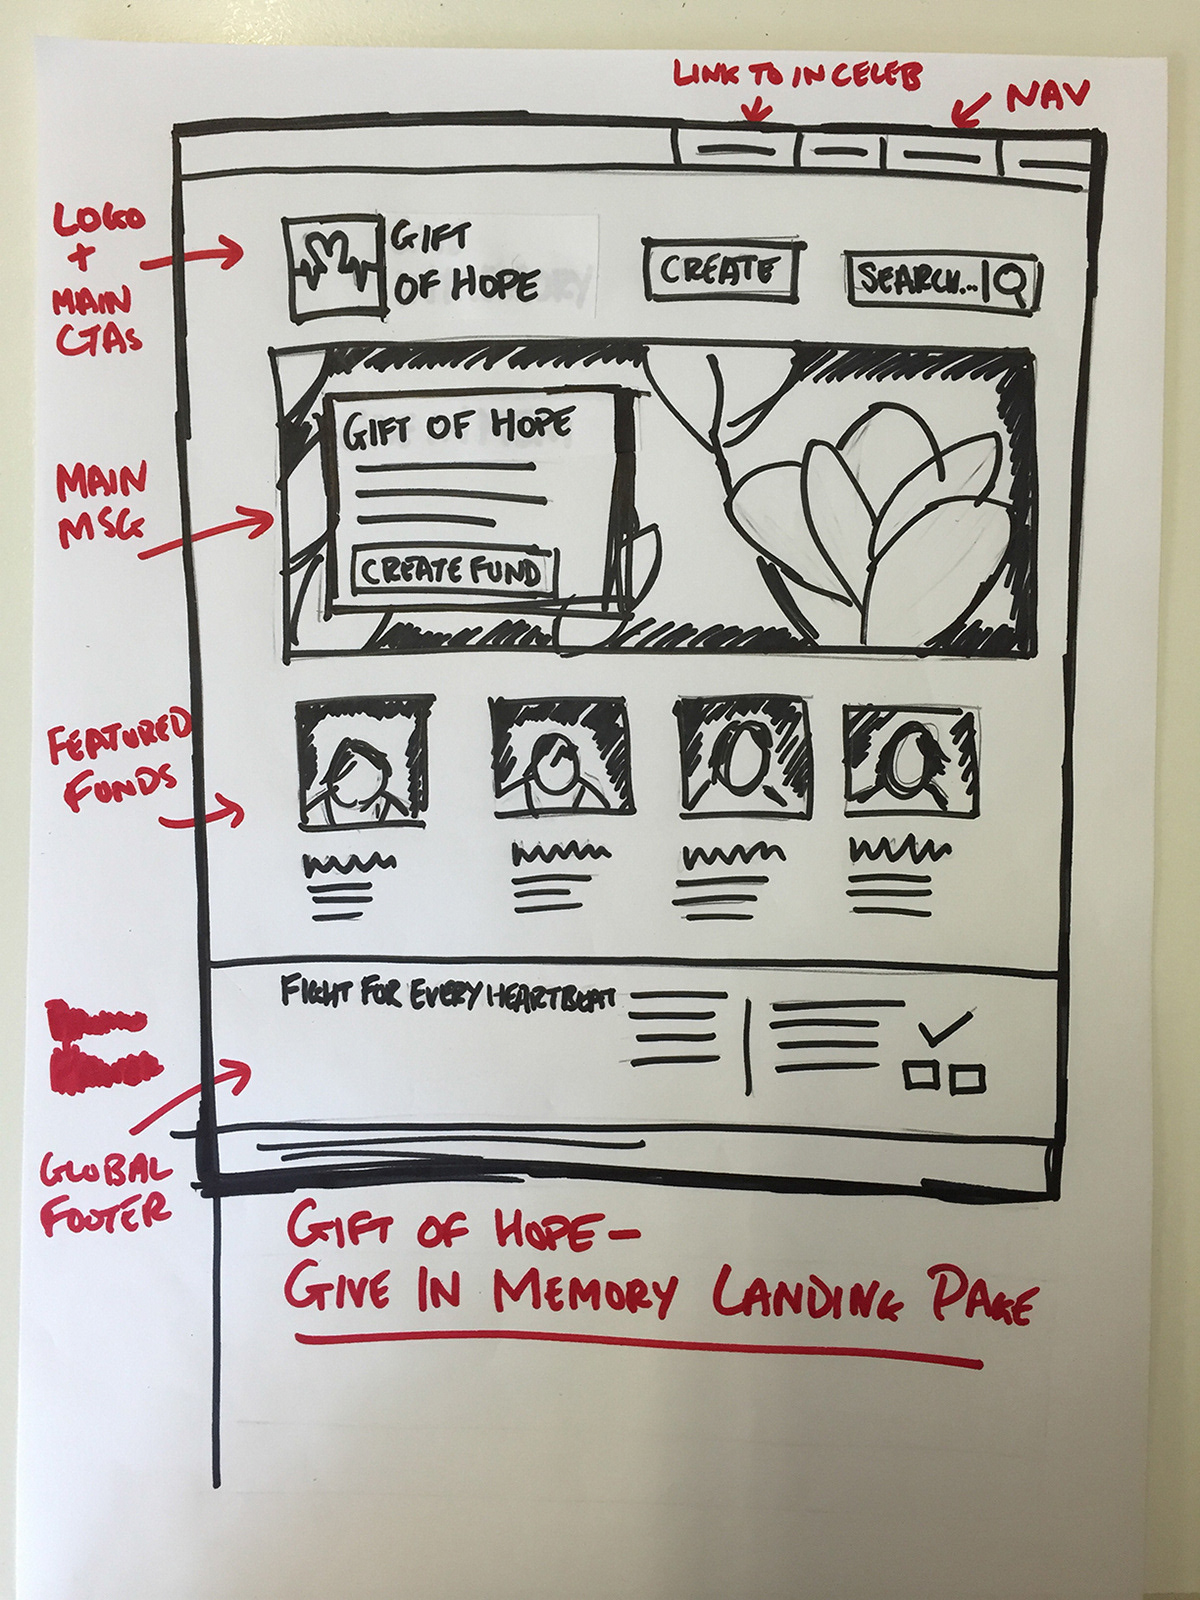 LINK TO IN CELEB
NAV
LOGO
+
MAIN
CTAs
GIFT
OF HOPE
CREATE
SEARCH...
MAIN
MSG
GIFT OF HOPE
CREATE FUND
FEATURED
FUNDS
FIGHT FOR EVERY HEARTBEAT
GLOBAL
FOOTER
GIFT OF HOPE –
GIVE IN MEMORY LANDING PAGE